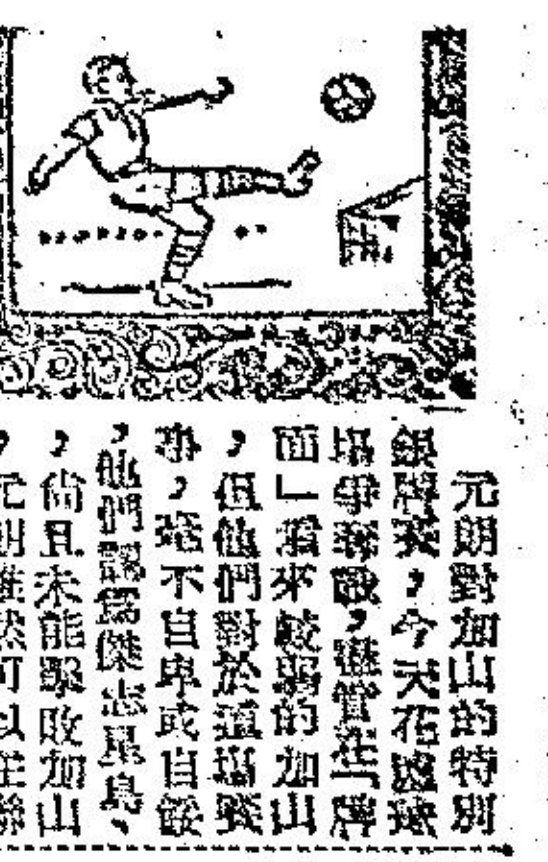 元朗對加山的特別
銀牌賽,今天花墟球
塲爭奪戰,儘管在「牌
面」看來較弱的加山
,但他們對於這塲賽
事,毫不自卑或自餒
,他們認爲傑志星島、
,尙且未能擊敗加山
,元朗雖然可以在聯